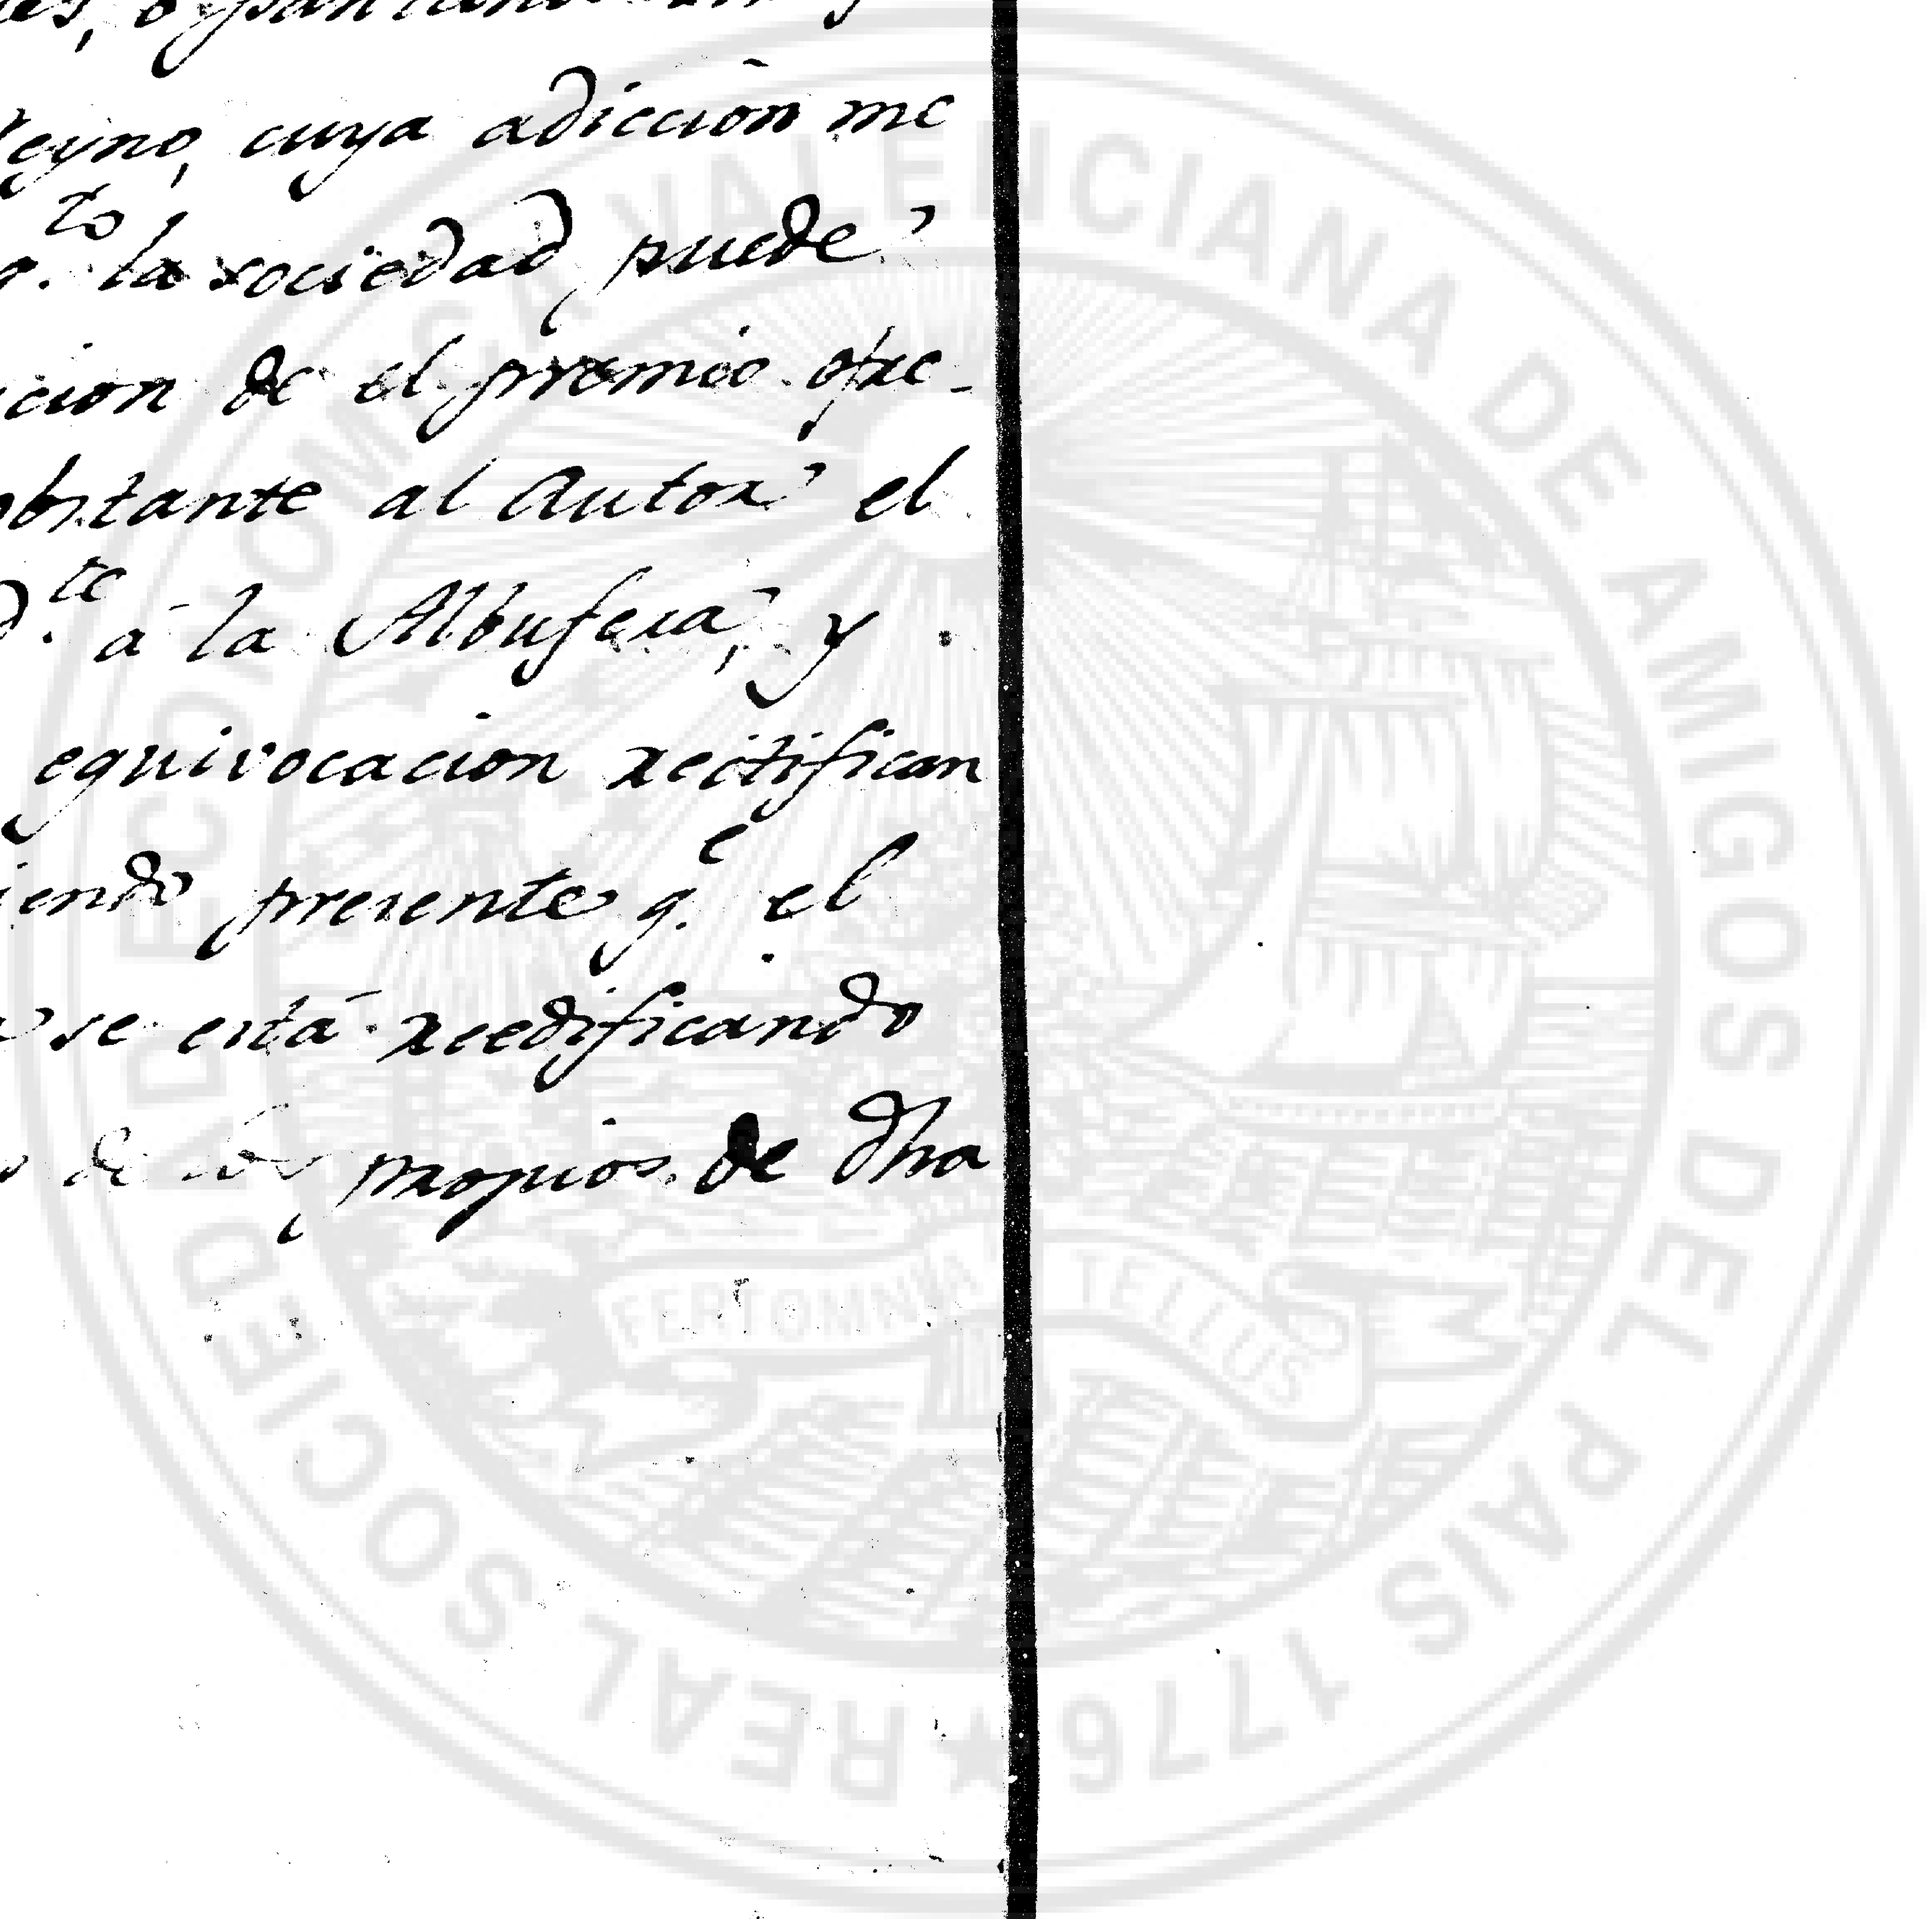 eyno, cuya adiccion me
la sociedad puede
cion de el premio ofre-
obstante al Autor el
á la Albufera, y
equivocacion rectifican
iendo presente q.e el
se está reedificando
de los propios de dha
REAL SOCIEDAD ECONOMICA VALENCIANA DE AMIGOS DEL PAIS 1776
FERT OMNIA TELLUS